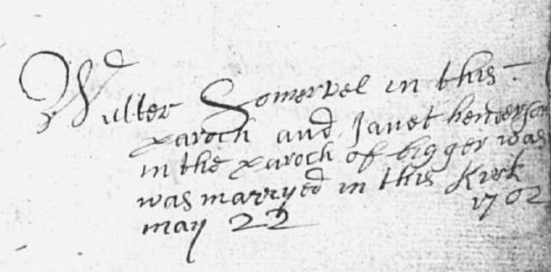 Walter Somervel in this
paroch and Janet henderson
in the paroch of bigger was
was marryed in this Kirk
may 22 1702